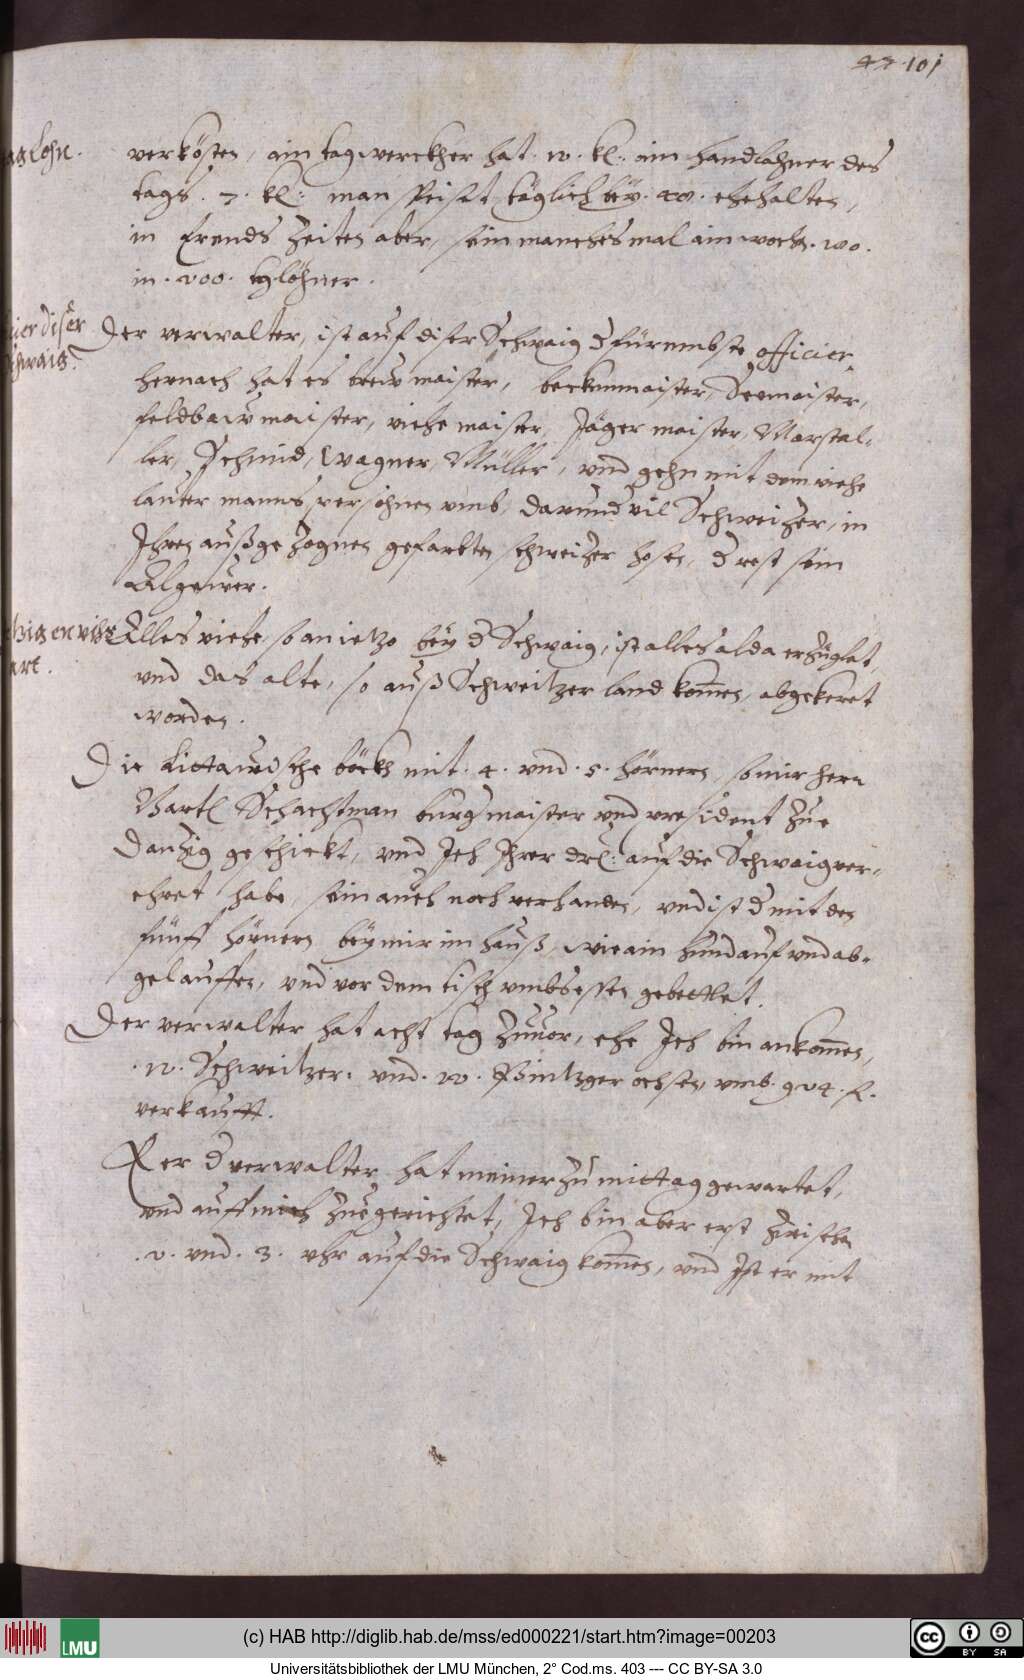 101
taglohn.
verkösten, ain tagwerckher hat. 10. kr: ain handlahner des
tags. 7. kr: man speist täglich bey. 40. ehehalten,
in Ernds Zeiten aber, sein manches mal ain woch. 100.
in. 200. tglöhner.
officier diser
Schwaig.
Der verwalter, ist auf diser Schwaig d fürnembste officier,
hernach hat es brew maister, beckenmaister, Seemaister,
feldbaw maister, viehe maister, Jäger maister, Marstal-
ler, Schmid, Wagner, Müller, und gehn mit dem viehe
lauter manns persohnen umb, darund vil Schweizer, in
Ihren außgezognen gefarbten schweizer hosen, d rest sein
Algewer.
ietzigen vihe
art.
Alles viehe so an ietzo bey d Schwaig, ist alles alda erzüglet,
und das alte, so auß Schweitzer land komen, abgekeret
worden.
Die Littawische böckh mit. 4. und. 5. hörnern, so mir herr
Bartl Schachtman burgmaister und president zue
Danzig geschickt, und Ich Ihrer drl: auf die Schwaig ver-
ehret habe, sein auch noch verhanden, und ist d mit den
fünff hörnern bey mir im hauß, wie ain hund auf und ab-
gelauffen, und vor dem tisch umbsessen gebettlet.
Der verwalter hat acht tag zuuor, ehe Ich bin ankomen,
Schweitzer. und. 20. Pintzger ochsen umb. 924. f.
verkaufft.
Er d verwalter hat meiner zu mittag gewartet,
und auff mich zue gerichtet, Ich bin aber erst zwischen
2. und. 3. uhr auf die Schwaig komen, und Ist er mit
LMU
(c) HAB http://diglib.hab.de/mss/ed000221/start.htm?image=00203
cc BY SA
Universitätsbibliothek der LMU München, 2° Cod.ms. 403 --- CC BY-SA 3.0